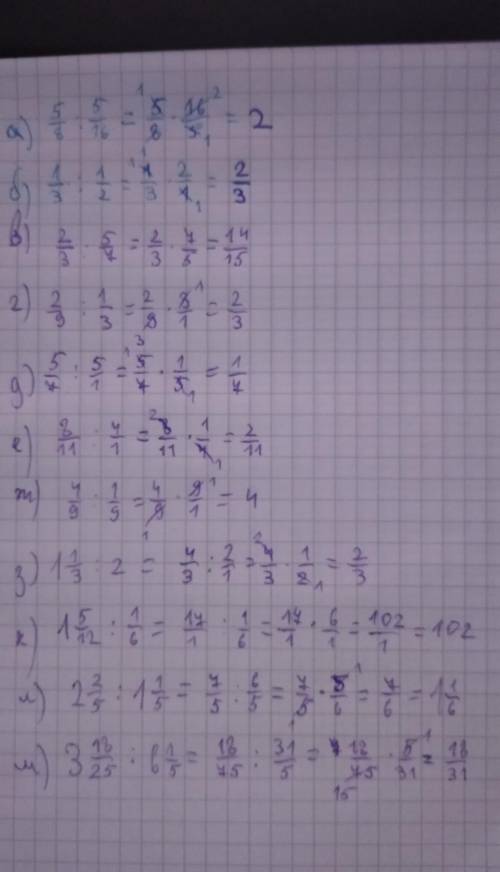 а) 5/8 : 5/16 = 5/8 · 16/5 = 2
б) 1/3 : 1/2 = 1/3 · 2/1 = 2/3
в) 2/3 : 5/7 = 2/3 · 7/5 = 14/15
г) 2/9 : 1/3 = 2/9 · 3/1 = 2/3
д) 5/7 : 5/1 = 5/7 · 1/5 = 1/7
е) 8/11 : 4/1 = 8/11 · 1/4 = 2/11
ж) 4/9 : 1/9 = 4/9 · 9/1 = 4
з) 1 1/3 : 2 = 4/3 : 2/1 = 4/3 · 1/2 = 2/3
к) 1 5/12 : 1/6 = 17/1 : 1/6 = 17/1 · 6/1 = 102/1 = 102
л) 2 2/5 : 1 1/5 = 7/5 : 6/5 = 7/5 · 5/6 = 7/6 = 1 1/6
м) 3 18/25 : 6 1/5 = 18/75 : 31/5 = 18/75 · 5/31 = 18/31